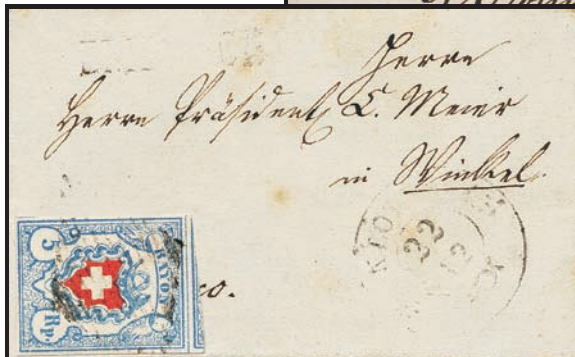 Herrn
Herrn Präsident C. Meier
in Winkel.
co.
5 RAYON I
Rp.
KLO
22